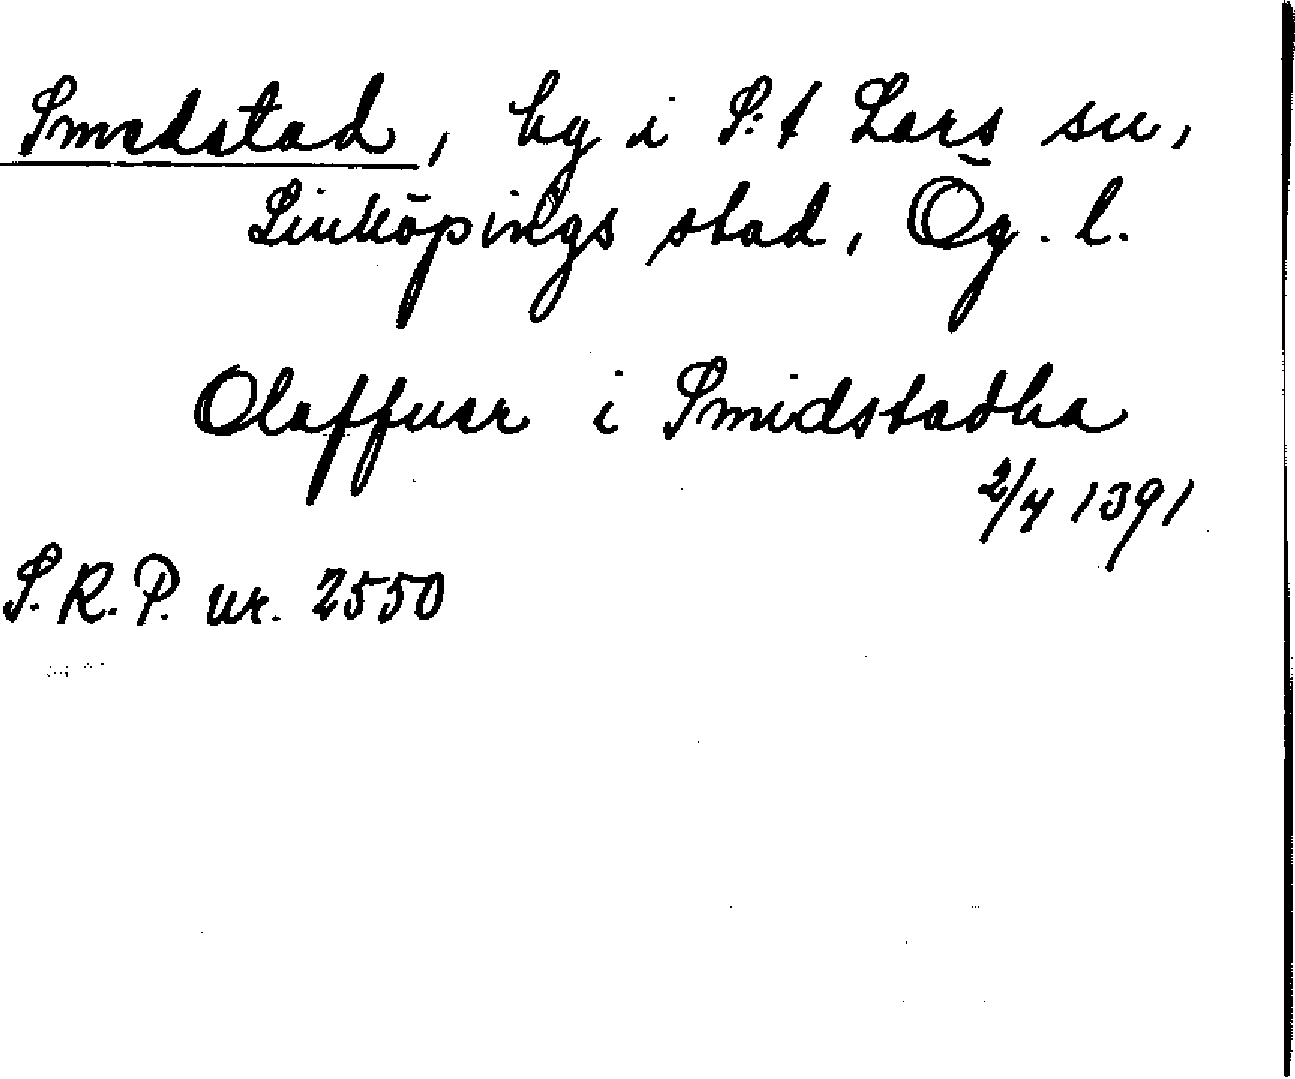 Smedstad, by i S:t Lars sn,
Linköpings stad, Ög. l.
Olaffuer i Smidstadha
2/4 1391
S.R.P. nr. 2550